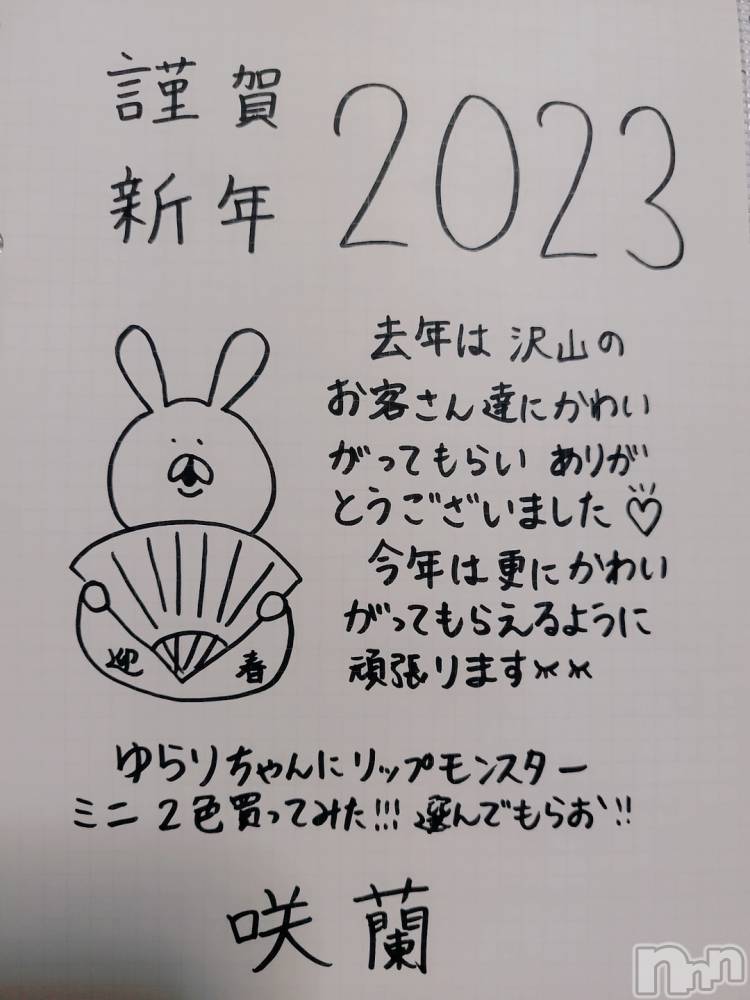 謹賀
新年
2023
去年は沢山の
お客さん達にかわい
がってもらい ありが
とうございました♡
今年は更にかわい
がってもらえるように
頑張ります××
迎 春
ゆらりちゃんにリップモンスター
ミニ 2色買ってみた!!! 選んでもらお!!
咲蘭
nnn